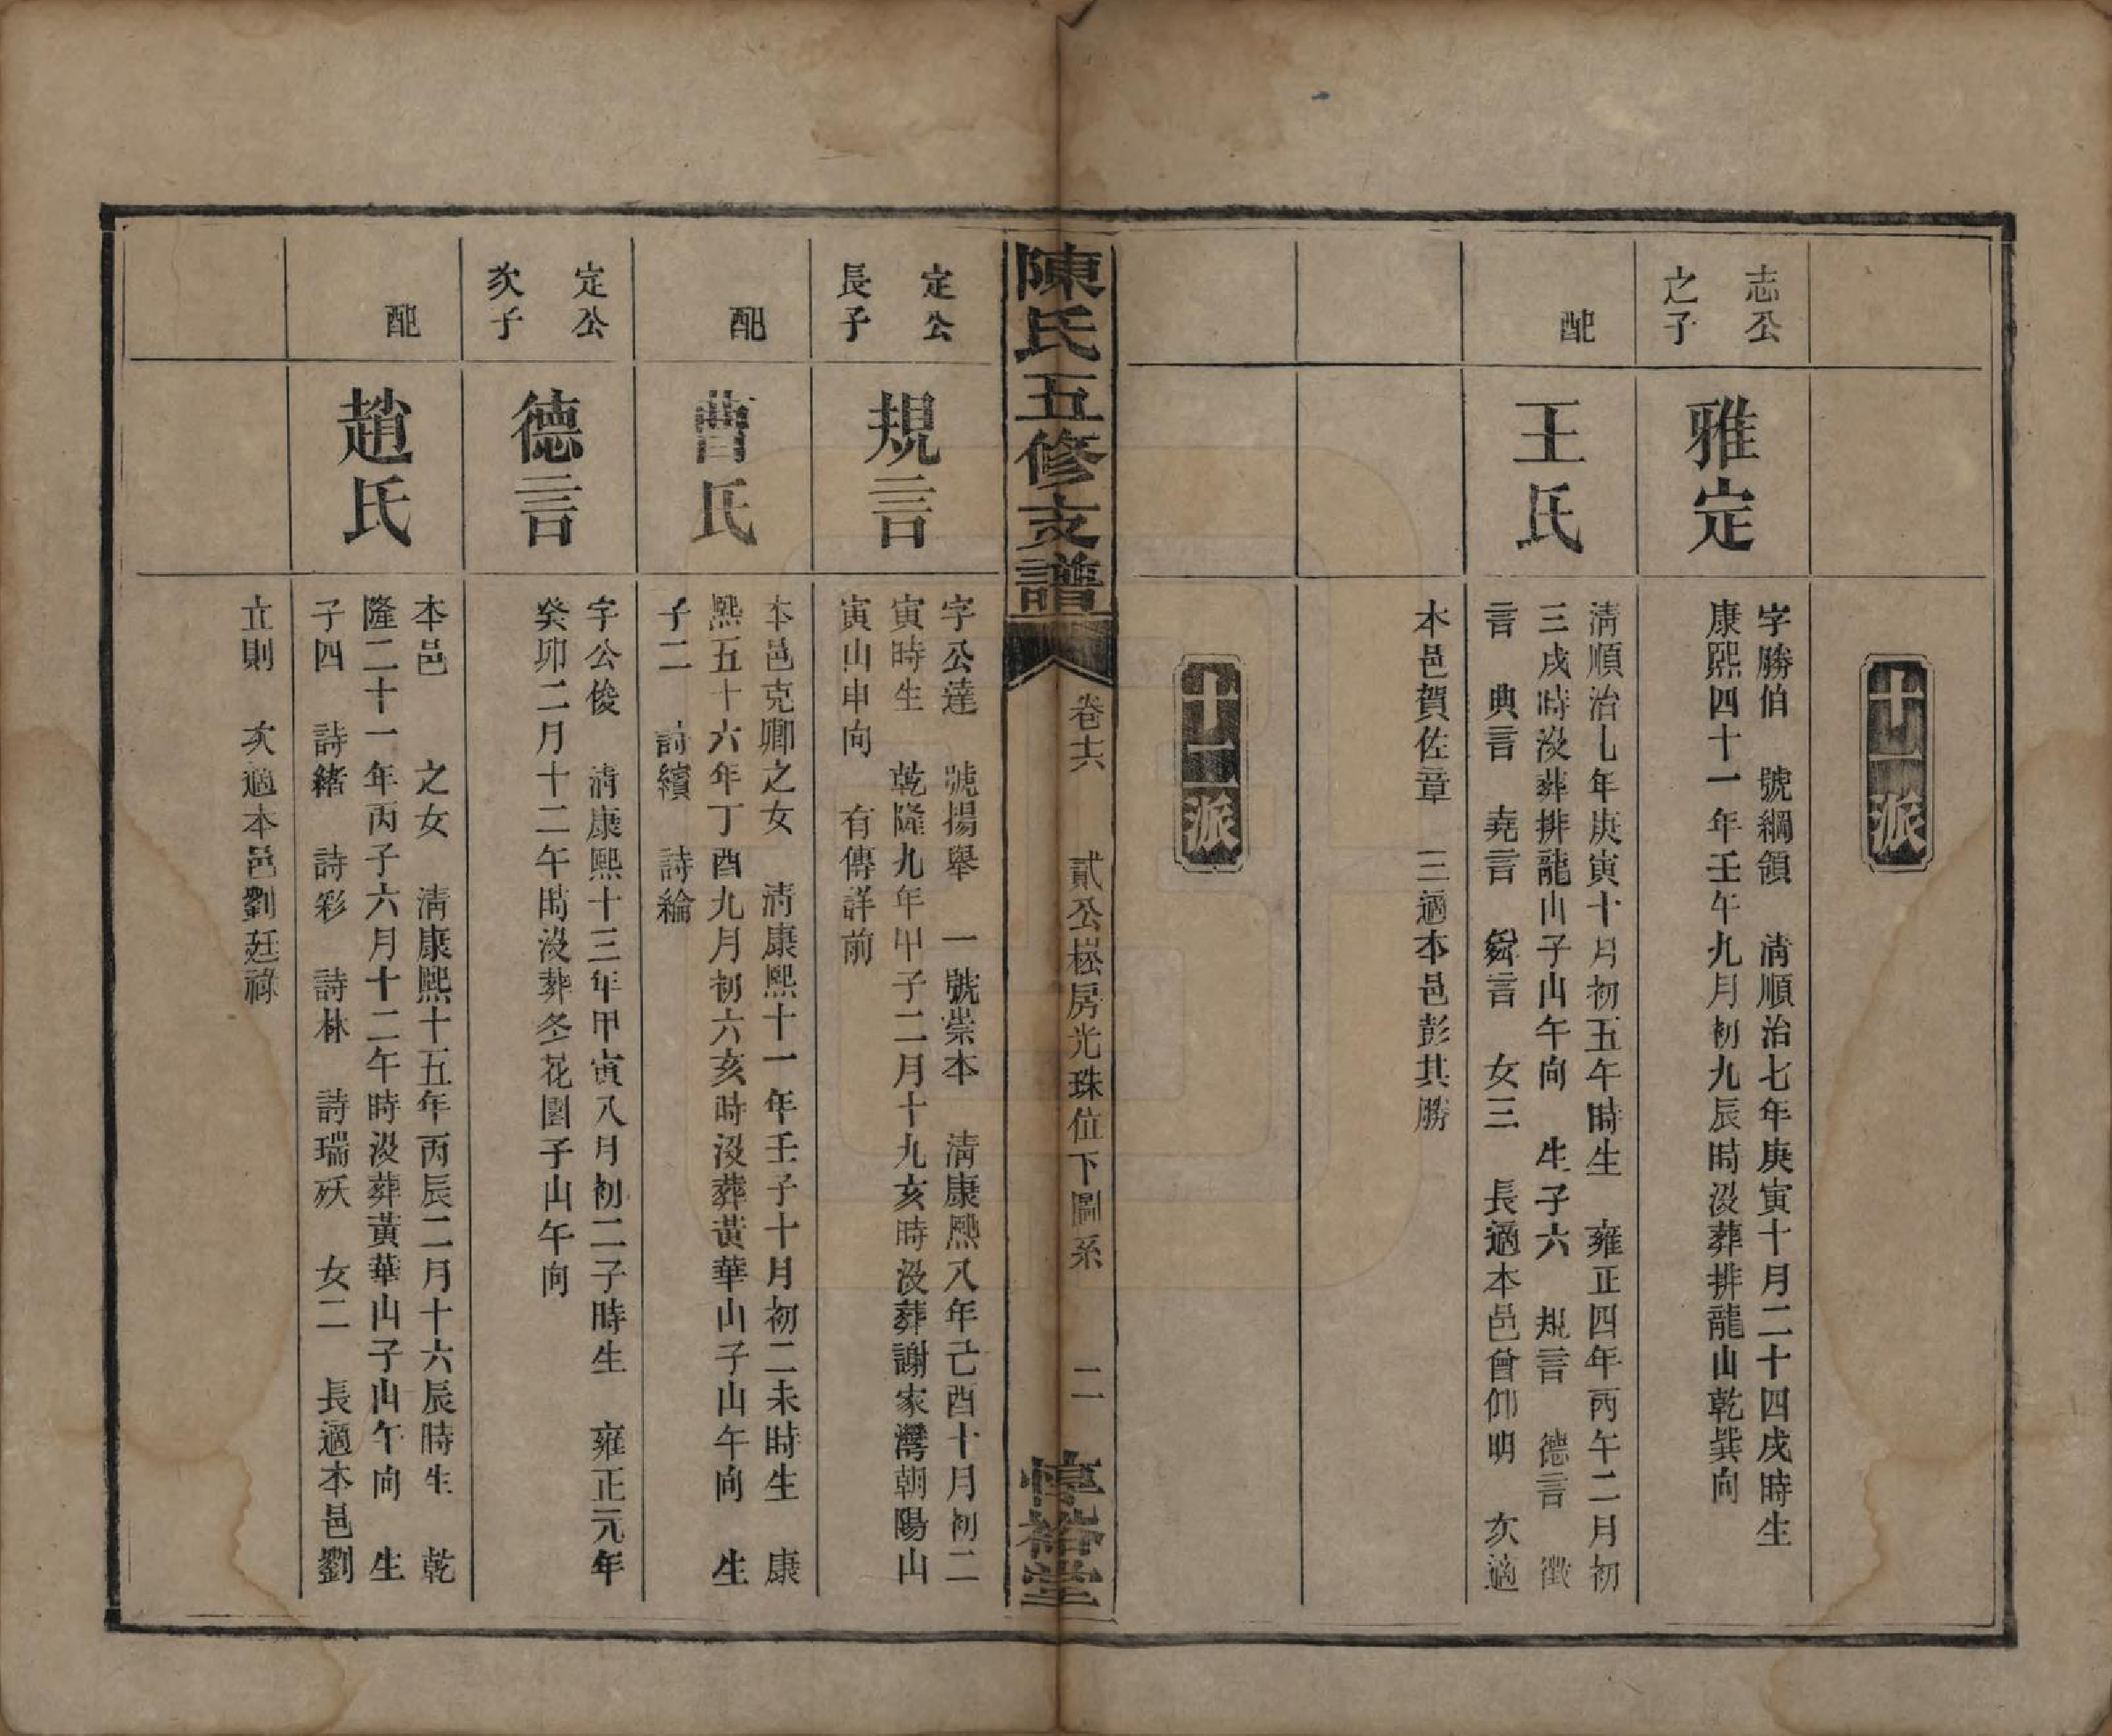 十一派
志公
之子
雅定
字勝伯　號綱領　清順治七年庚寅十月二十四戌時生
康熙四十一年壬午九月初九辰時沒葬排龍山乾巽向
配
王氏
清順治七年庚寅十月初五午時生　雍正四年丙午二月初
三戌時沒葬排龍山子山午向　生子六　規言　德言　徵
言　典言　堯言　舜言　女三　長適本邑曾仰明　次適
本邑賀佐章　三適本邑彭其勝
十二派
陳氏五修支譜
卷十六
貳公崧房光珠位下圖系
二
惇裕堂
定公
長子
規言
字公達　號揚舉　一號崇本　清康熙八年己酉十月初二
寅時生　乾隆九年甲子二月十九亥時沒葬謝家灣朝陽山
寅山申向　有傳詳前
配
曹氏
本邑克卿之女　清康熙十一年壬子十月初二未時生　康
熙五十六年丁酉九月初六亥時沒葬黃華山子山午向　生
子二　詩繽　詩綸
定公
次子
德言
字公俊　清康熙十三年甲寅八月初二子時生　雍正元年
癸卯二月十二午時沒葬冬花園子山午向
配
趙氏
本邑　之女　清康熙十五年丙辰二月十六辰時生　乾
隆二十一年丙子六月十二午時沒葬黃華山子山午向　生
子四　詩緒　詩彩　詩林　詩瑞殀　女二　長適本邑劉
立則　次適本邑劉廷祿